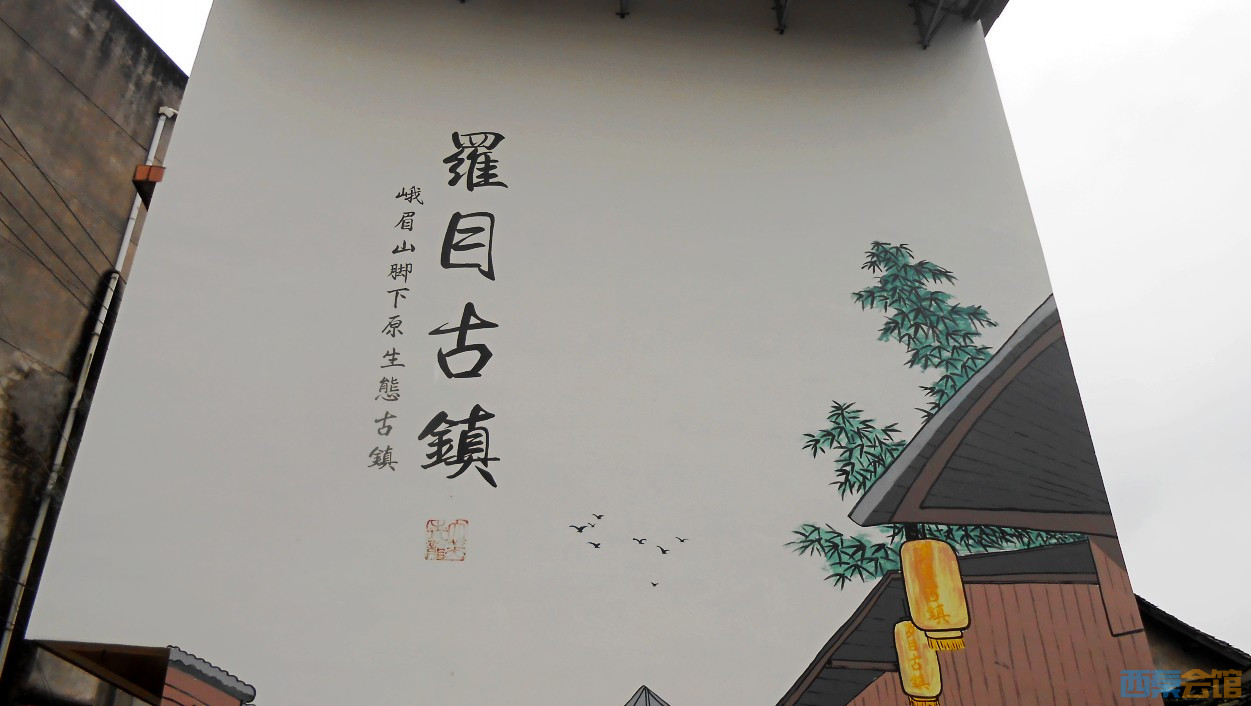 羅目古鎮
峨眉山脚下原生態古鎮
古鎮
西秦会馆